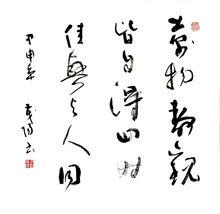 萬物静觀
皆自得四时
佳興与人同
甲申年